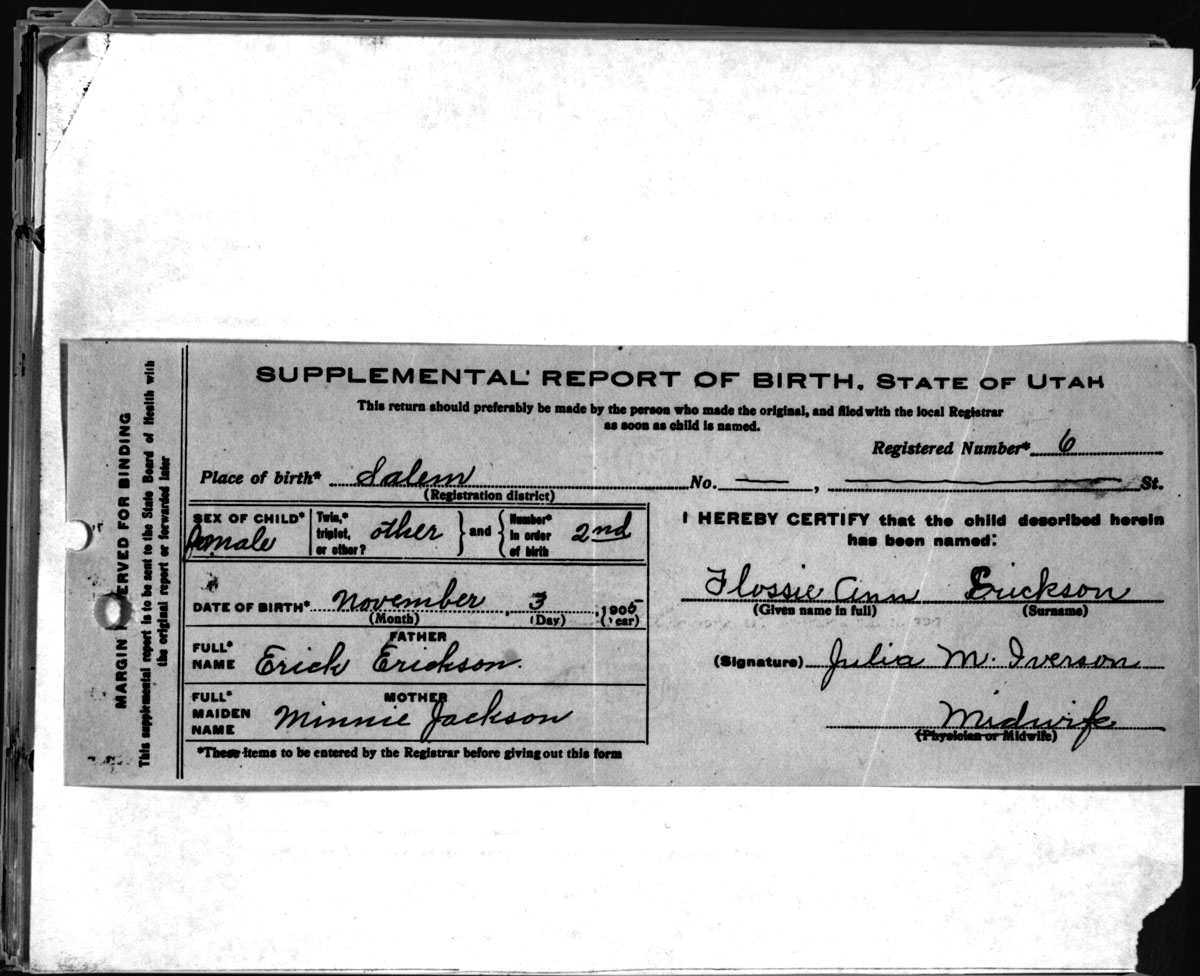 SUPPLEMENTAL REPORT OF BIRTH, STATE OF UTAH
This return should preferably be made by the person who made the original, and filed with the local Registrar
as soon as child is named.
Registered Number* 6
Place of birth* Salem No. — , — St.
(Registration district)
SEX OF CHILD* female
Twin,* triplet, or other? other } and { Number* in order of birth 2nd
DATE OF BIRTH* November , 3 , 1905
(Month) (Day) (Year)
FATHER
FULL* NAME Erick Erickson.
MOTHER
FULL* MAIDEN NAME Minnie Jackson
*These items to be entered by the Registrar before giving out this form
I HEREBY CERTIFY that the child described herein
has been named:
Flossie Ann Erickson
(Given name in full) (Surname)
(Signature) Julia M. Iverson
Midwife
(Physician or Midwife)
MARGIN RESERVED FOR BINDING
This supplemental report is to be sent to the State Board of Health with
the original report or forwarded later